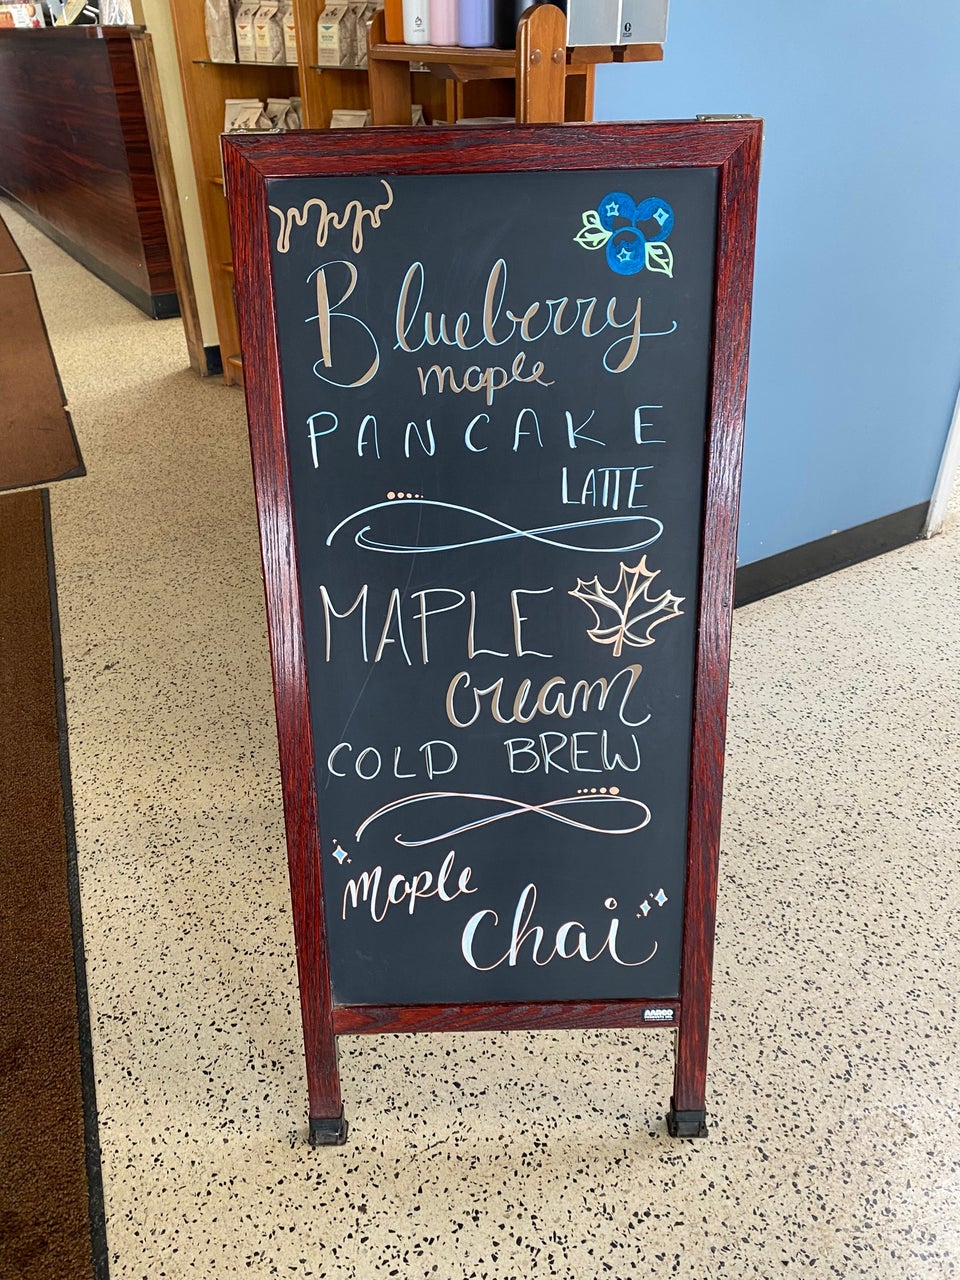 Blueberry
maple
PANCAKE
LATTE
MAPLE
cream
COLD BREW
maple
chai
AARCO